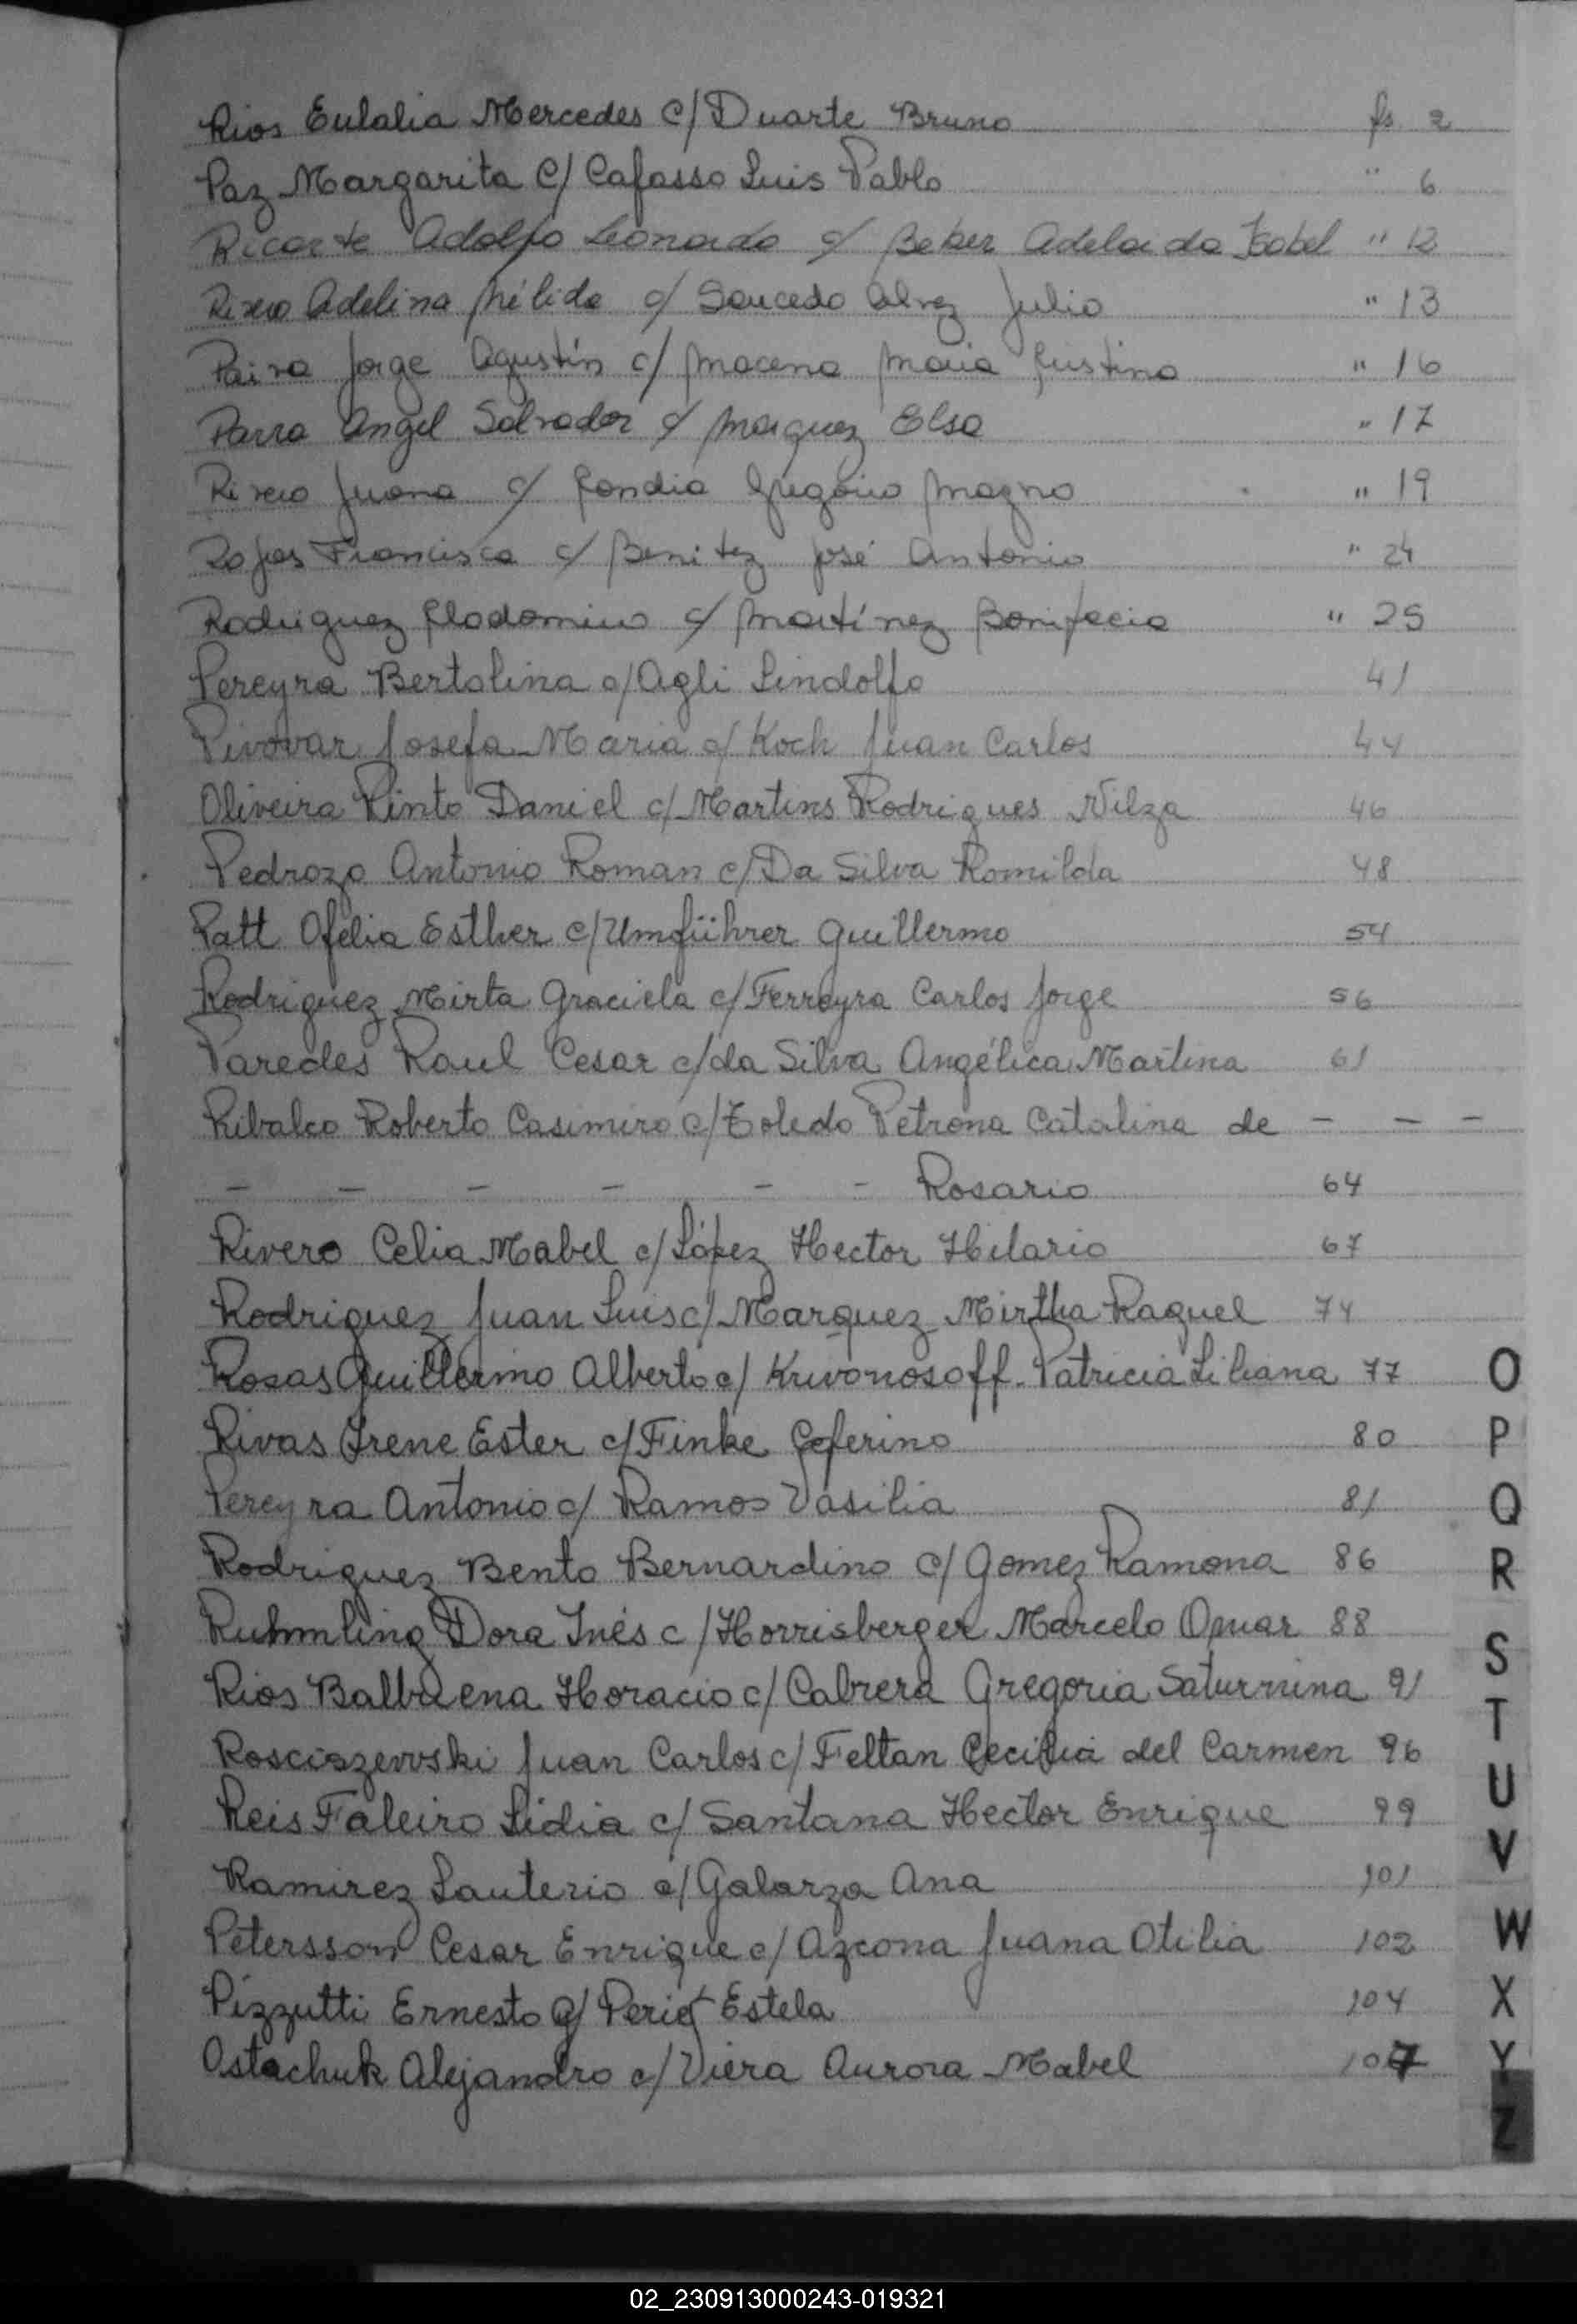 Rios Eulalia Mercedes c/ Duarte Bruno fs. 2
Paz Margarita c/ Cafasso Luis Pablo " 6
Ricarte Adolfo Leonardo c/ Beker Adelaida Isabel " 12
Rivero Adelina Nélida c/ Saucedo Alvez Julio " 13
Paiva Jorge Agustín c/ Macena Maria Justina " 16
Parra Angel Salvador c/ Marquez Elsa " 17
Rivero Juana c/ Gregorio Magno " 19
Rojas Francisca c/ Benitez José Antonio " 24
Rodriguez Clodomiro c/ Martínez Bonifacia " 25
Pereyra Bertolina c/ Agli Lindolfo 41
Pivovar Josefa Maria c/ Koch Juan Carlos 44
Oliveira Pinto Daniel c/ Martins Rodrigues Nilza 46
Pedrozo Antonio Roman c/ Da Silva Romilda 48
Patt Ofelia Esther c/ Umführer Guillermo 54
Rodriguez Mirta Graciela c/ Ferreyra Carlos Jorge 56
Paredes Raul Cesar c/ da Silva Angélica Martina 61
Ribalco Roberto Casimiro c/ Toledo Petrona Catalina de - - -
- - - - - - Rosario 64
Rivero Celia Mabel c/ López Hector Hilario 67
Rodriguez Juan Luis c/ Marquez Mirtha Raquel 74
Rosas Guillermo Alberto c/ Krivonosoff Patricia Liliana 77
Rivas Irene Ester c/ Finke Ceferino 80
Pereyra Antonio c/ Ramos Vasilia 81
Rodriguez Bento Bernardino c/ Gomez Ramona 86
Ruhmling Dora Inés c/ Horrisberger Marcelo Omar 88
Rios Balbuena Horacio c/ Cabrera Gregoria Saturnina 91
Rosciszewski Juan Carlos c/ Feltan Cecilia del Carmen 96
Reis Faleiro Lidia c/ Santana Hector Enrique 99
Ramirez Lauterio c/ Galarza Ana 101
Petersson Cesar Enrique c/ Azcona Juana Otilia 102
Pizzutti Ernesto c/ Estela 104
Ostachuk Alejandro c/ Viera Aurora Mabel 107
O
P
Q
R
S
T
U
V
W
X
Y
Z
02_230913000243-019321